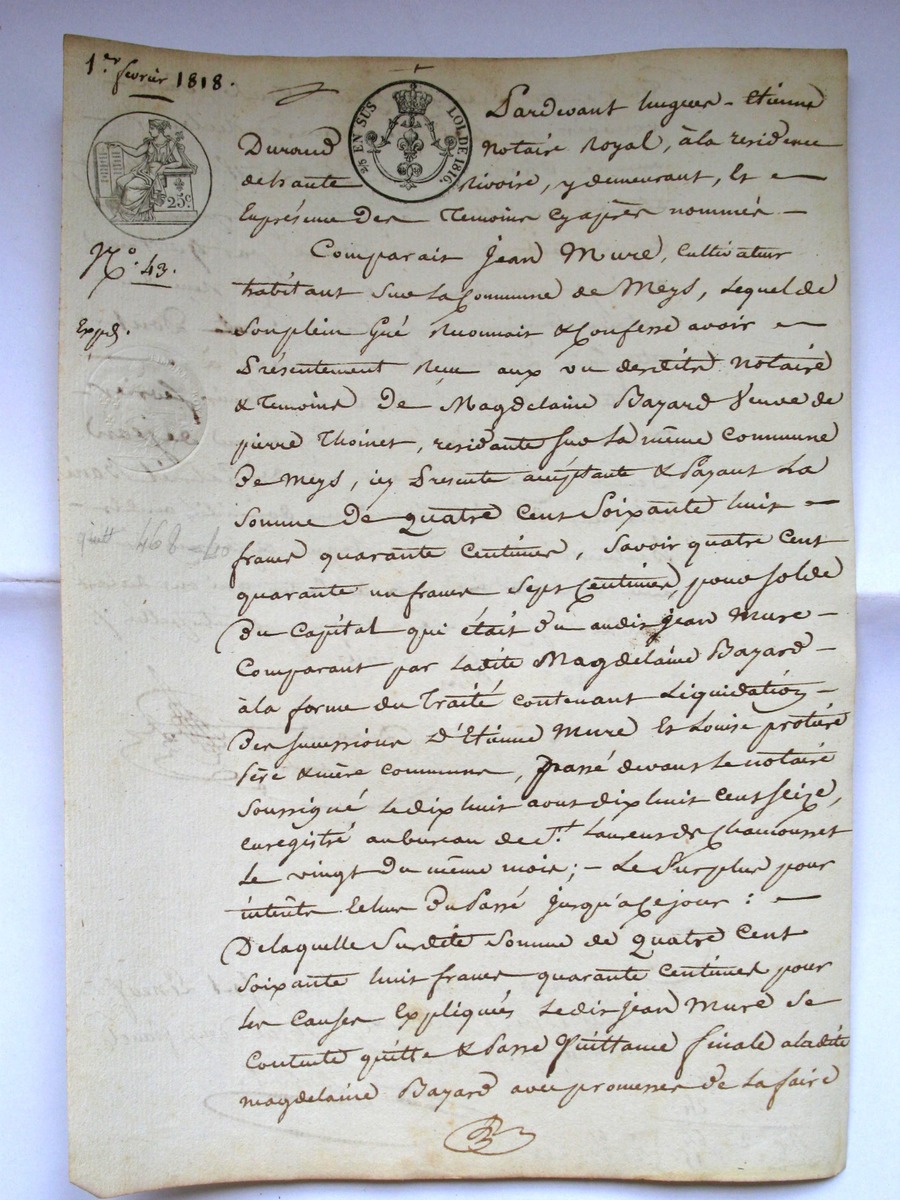 1.er fevrier 1818.
2/8 EN SUS LOI DE 1816.
25c.
N.o 43.
Expé.
quitt 468 - 40
Pardevant hugues - Etienne
Durand notaire royal, à la residence
de haute Rivoire, y demeurant, Et -
En présence des Temoins cy après nommés -
Comparait Jean Mure, Cultivateur
habitant sur la Commune de Meys, Lequel de
Son plein Gré Reconnait & Confesse avoir -
Présentement Reçu aux vu desdits notaire
& Temoins De Magdelaine Bayard Veuve de
pierre Thoinet, residante sur la même commune
De Meys, icy Présente acceptante & Payant La
Somme De quatre Cent Soixante huit -
francs quarante Centimes, Savoir quatre Cent
quarante un francs Sept Centimes, pour Solde
Du Capital qui était du audit jean Mure -
Comparant par Ladite Magdelaine Bayard -
à la forme du Traité contenant Liquidation -
Des Successions D'Etienne Mure Et Louise protiere
Père & mère communs, passé devant Le notaire
Soussigné Le dix huit aout dix huit Cent Seize,
enregistré au bureau de St. Laurent de Chamousset
Le vingt du même mois; - Le Surplus pour
intérêts Echus Du Passé Jusqu'a Ce jour : -
De laquelle Susdite Somme de quatre Cent
Soixante huit francs quarante Centimes pour
Les Causes Expliquées Ledit jean Mure Se
Contente quitte & Passe Quittance finale a ladite
magdelaine Bayard avec promesses De La faire